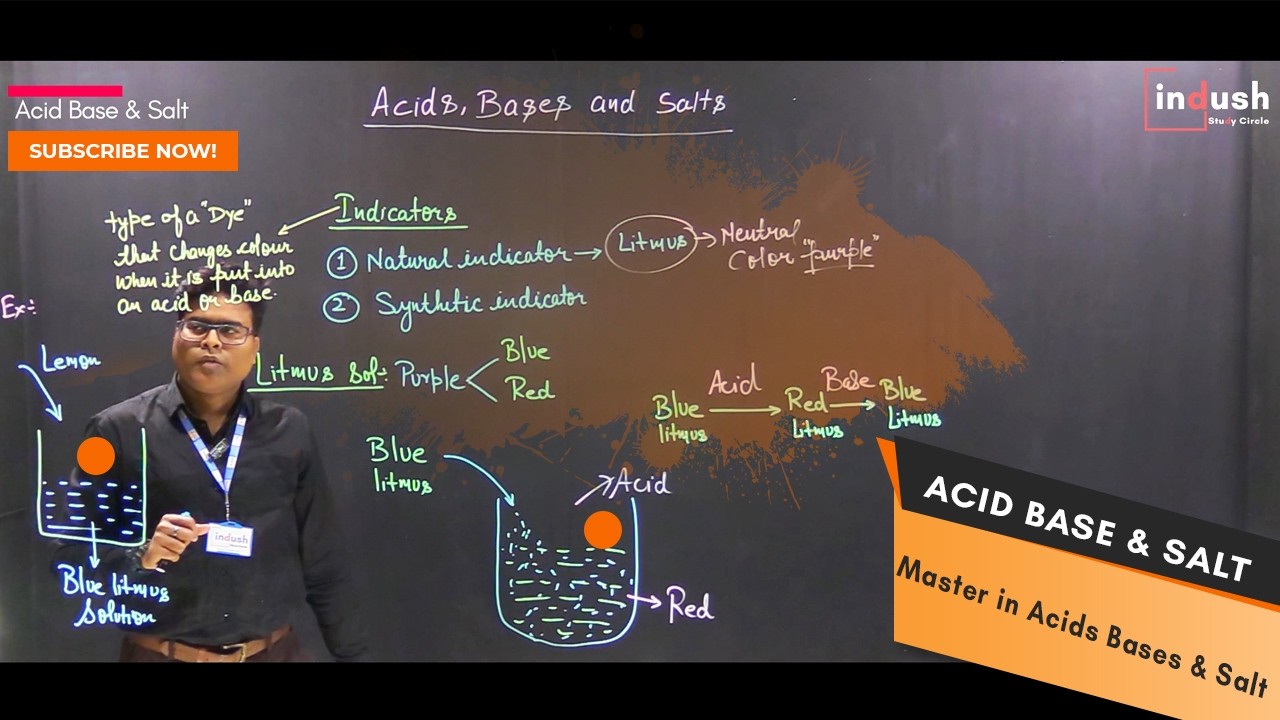 Acid Base & Salt
SUBSCRIBE NOW!
indush
Study Circle
Acids, Bases and Salts
type of a "Dye"
that changes colour
when it is put into
an acid or base.
Indicators
1 Natural indicator → Litmus → Neutral
Color "purple"
2 Synthetic indicator
Ex:-
Lemon
Blue litmus
Solution
Litmus Sol:- Purple
Blue
Red
Blue
litmus
Acid
Red
Blue
litmus
Acid
Red
Litmus
Base
Blue
Litmus
indush
ACID BASE & SALT
Master in Acids Bases & Salt